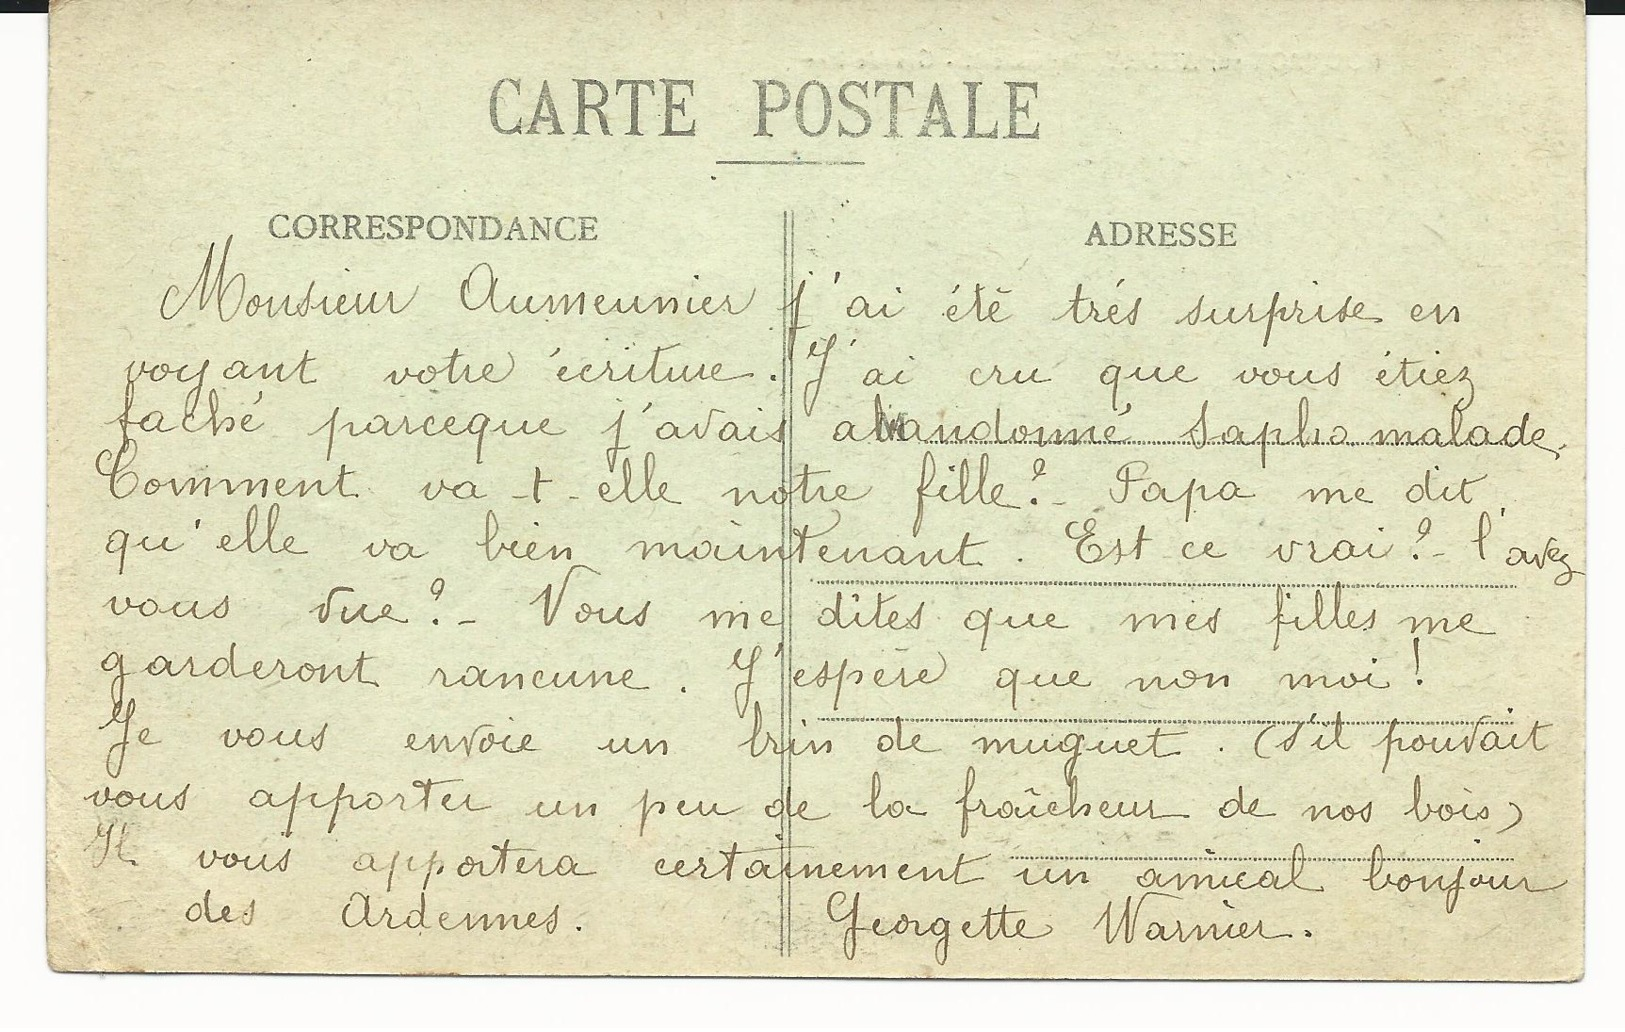 CARTE POSTALE
CORRESPONDANCE
ADRESSE
Monsieur Aumeunier j'ai été trés surprise en
voyant votre écriture. J'ai cru que vous étiez
faché parceque j'avais abandonné Sapho malade.
Comment va-t-elle notre fille?- Papa me dit
qu'elle va bien maintenant. Est ce vrai?- l'avez
vous vue?- Vous me dites que mes filles me
garderont rancune. J'espère que non moi!
Je vous envoie un brin de muguet. (S'il pouvait
vous apporter un peu de la fraîcheur de nos bois)
Il vous apportera certainement un amical bonjour
des Ardennes. Georgette Warnier.